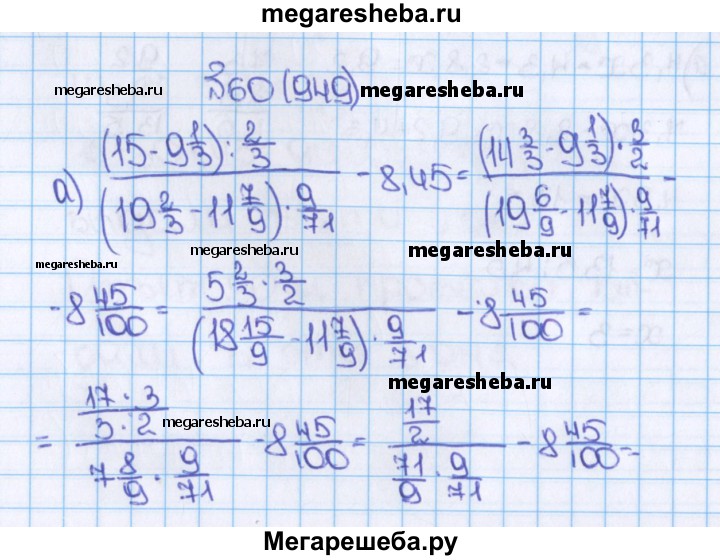 megaresheba.ru
360(949)
megaresheba.ru megaresheba.ru
а) ((15 - 9 1/3) : 2/3) / ((19 2/3 - 11 7/9) · 9/71) - 8,45 = ((14 3/3 - 9 1/3) · 3/2) / ((19 6/9 - 11 7/9) · 9/71) -
megaresheba.ru megaresheba.ru
megaresheba.ru
- 8 45/100 = (5 2/3 · 3/2) / ((18 15/9 - 11 7/9) · 9/71) - 8 45/100 =
megaresheba.ru
= ((17 · 3)/(3 · 2)) / (7 8/9 · 9/71) - 8 45/100 = (17/2) / (71/9 · 9/71) - 8 45/100 =
megaresheba.ru
Мегарешеба.ру